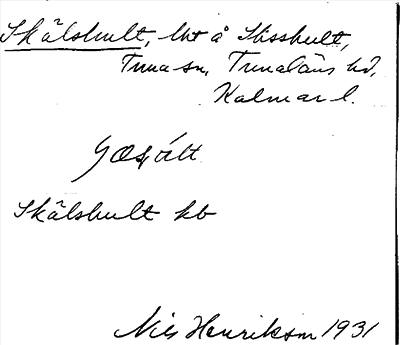 Skälshult, lht å Skisshult,
Tuna sn, Tunaläns hd,
Kalmar l.
Skälshult hb
Nils Henrikson 1931